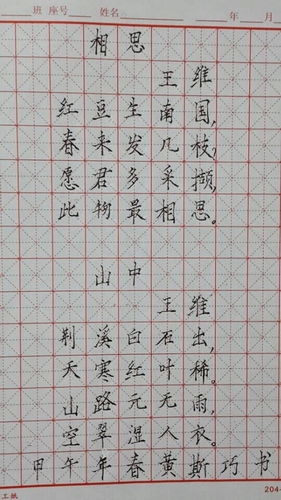 班 座号 姓名 年 月
相思
王维
红豆生南国，
春来发几枝？
愿君多采撷，
此物最相思。
山中
王维
荆溪白石出，
天寒红叶稀。
山路元无雨，
空翠湿人衣。
甲午年春黄斯巧书
工纸 204